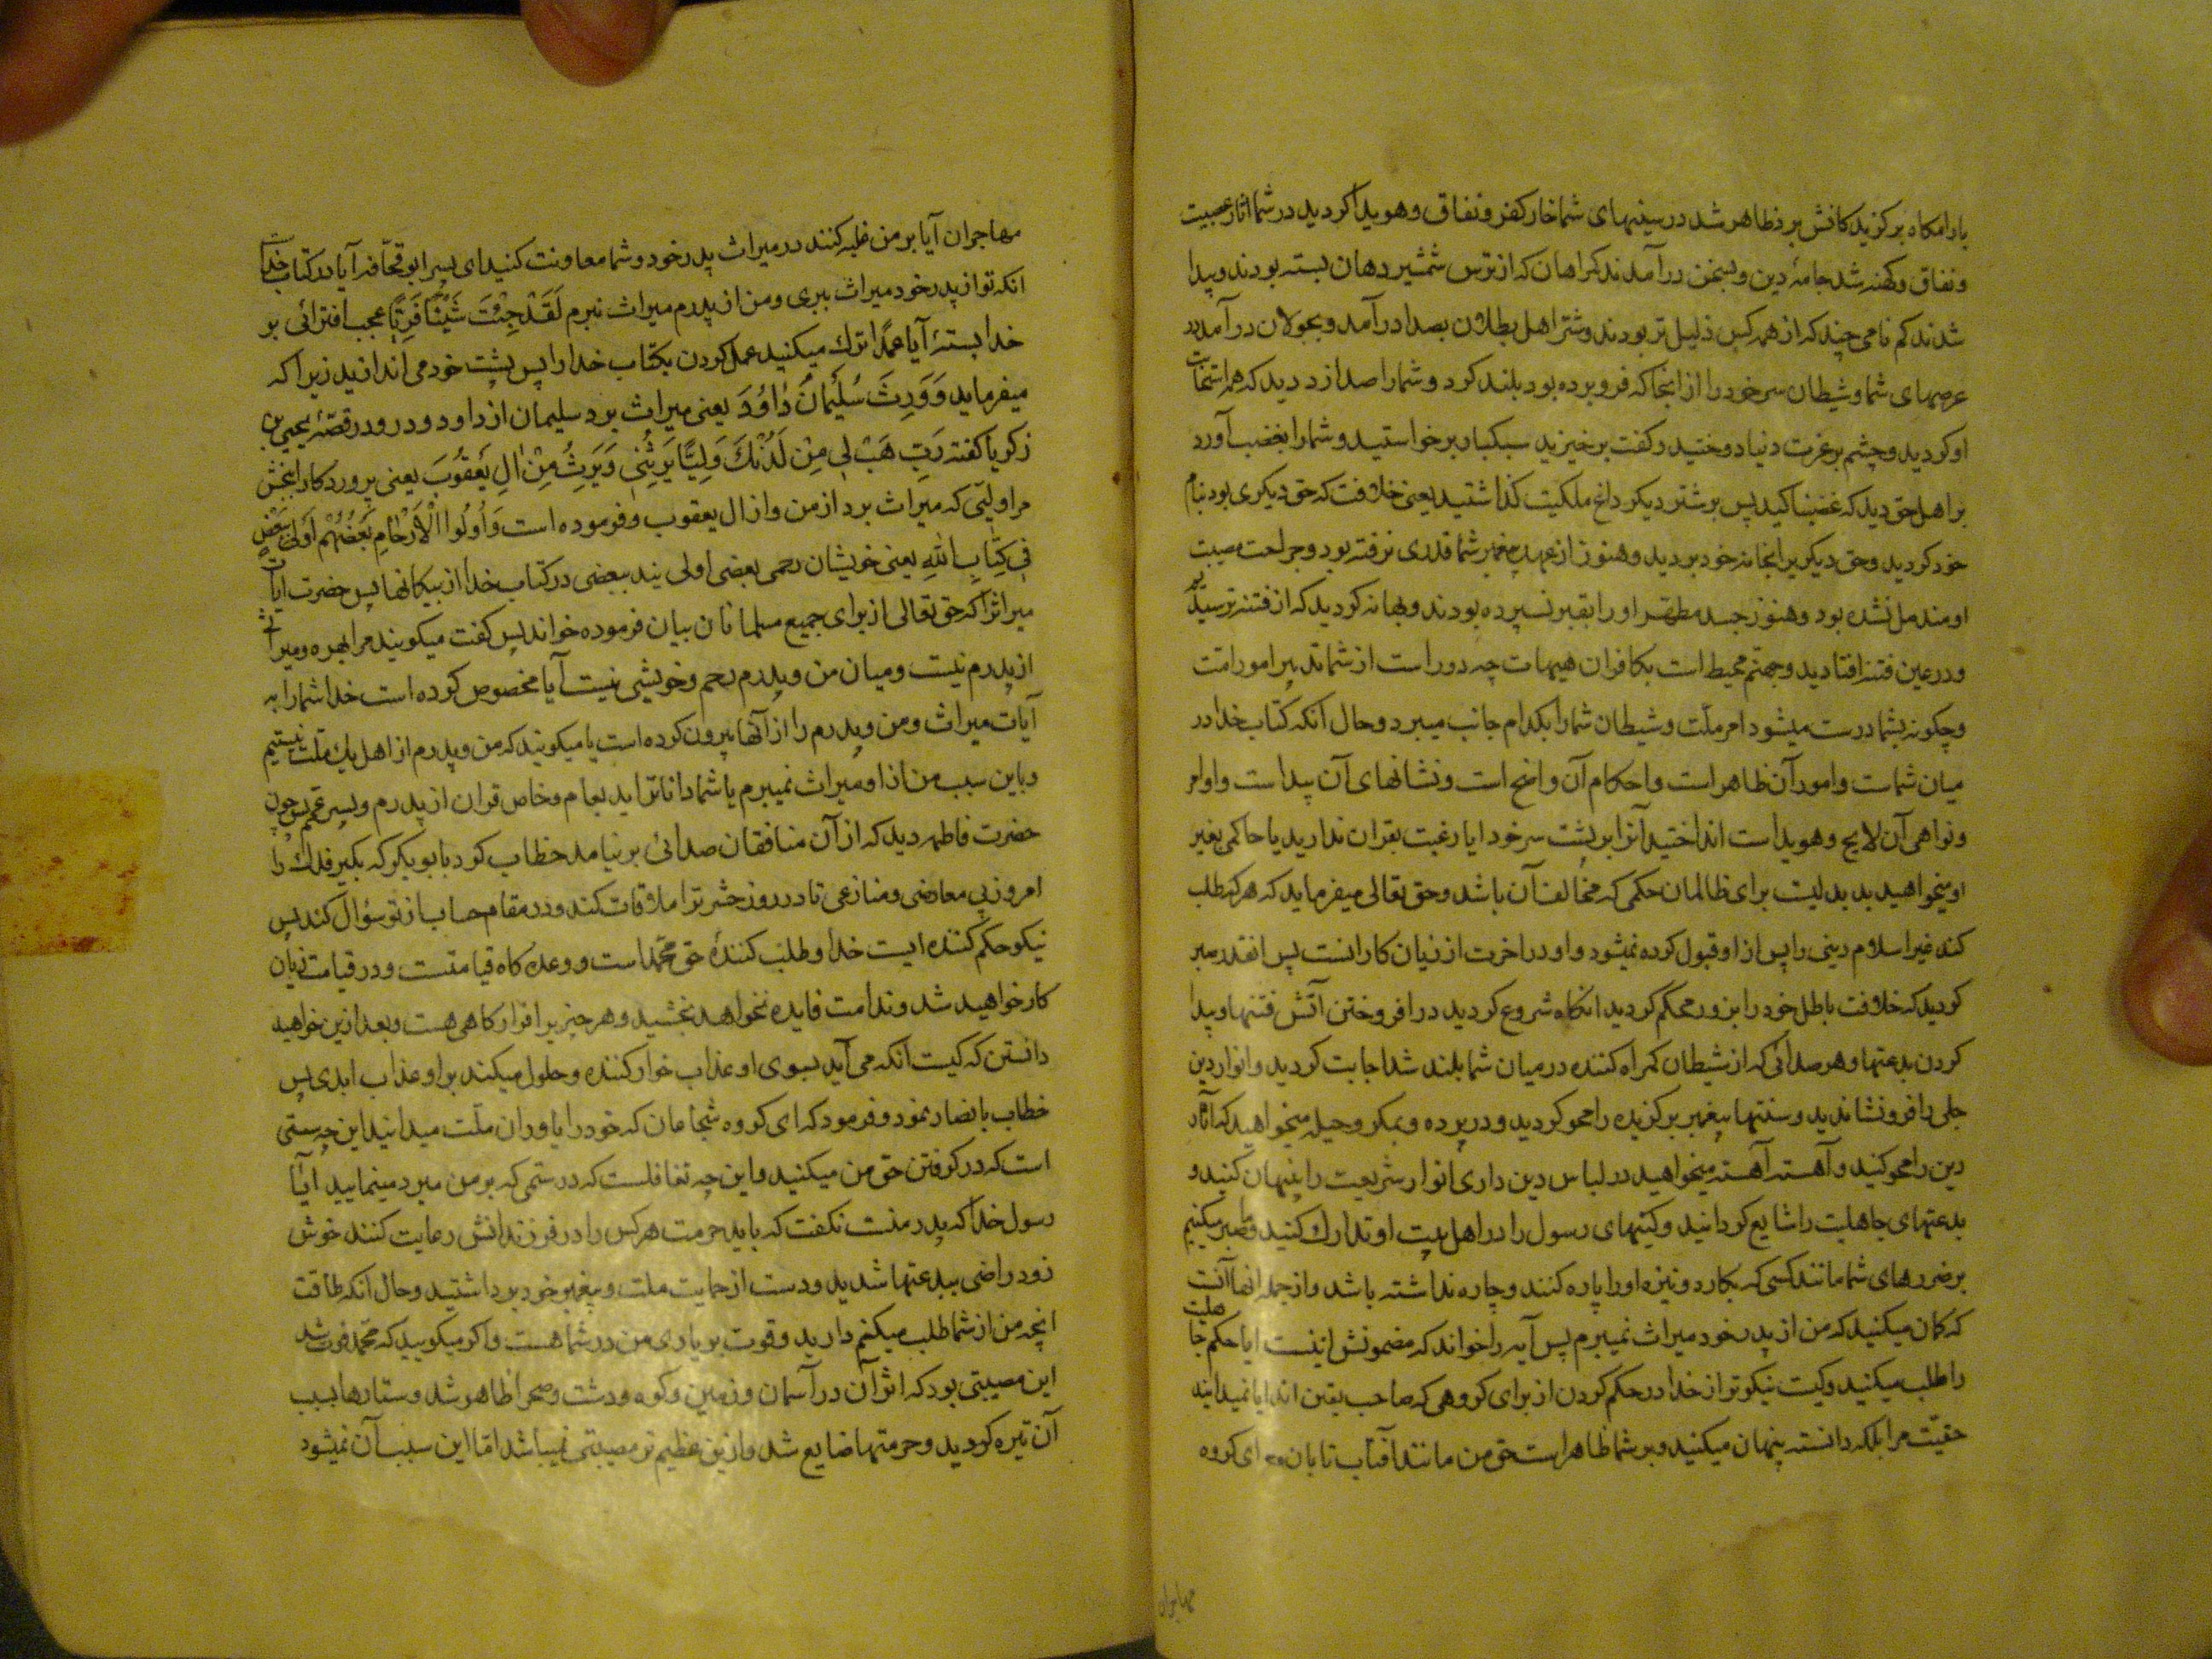 بارامکاه برکزیدکانش برد ظاهر شد در سینهای شما خار کفر و نفاق و هویدا کردید در شما اثار عصبیت
و نفاق و کهنه شد جامهٔ دین و بسخن درآمدند کمراهان که از ترس شمشیر دهان بسته بودند و پیدا
شدند کم نامی چند که از همه کس ذلیل تر بودند و شتر اهل بطلان بصدا درآمد و بجولان درآمد در
عرصهای شما و شیطان سر خود را از انجا که فرو برده بود بلند کرد و شما را صدا زد دید که هم استجابت
او کردید و چشم بر عزت دنیا دوختید و کفت برخیزید سبکبار برخواستید و شما را بغضب آورد
بر اهل حق دید که غضبناکید پس بر شتر دیکر داغ ملکیت کذاشتید یعنی خلافت که حق دیکری بود بنام
خود کردید و حق دیکریرا بخانه خود بردید و هنوز از عهد پیغمبر شما قدری نرفته بود و جراحت مصیبت
او مندمل نشده بود و هنوز جسد مطهر او را بقبر نسپرده بودند و بهانه کردید که از فتنه ترسیدیم
و در عین فتنه افتادید و جهنّم محیط است بکافران هیهات چه دور است از شما تدبیر امور امت
و چکونه بشما درست میشود امر ملّت و شیطان شما را بکدام جانب میبرد و حال آنکه کتاب خدا در
میان شماست و امور آن ظاهر است و احکام آن واضح است و نشانهای آن پیداست و اوامر
و نواهی آن لایح و هویداست انداختید آنرا بر پشت سر خود ایا رغبت بقران ندارید یا حاکمی بغیر
او میخواهید بد بدلیت برای ظالمان حکمی که مخالف آن باشد و حق تعالی میفرماید که هر که طلب
کند غیر اسلام دینی را پس از او قبول کرده نمیشود و او در اخرت از زیان کارانست پس انقدر صبر
کردید که خلافت باطل خود را بزور محکم کردید انکاه شروع کردید در افروختن آتش فتنها و پیدا
کردن بدعتها و هر صدائی که از شیطان کمراه کننده در میان شما بلند شد اجابت کردید و انوار دین
جلی را فرو نشاندید و سنتهای پیغمبر برکزیده را محو کردید و در پرده و بمکر و حیله میخواهید که اثار
دین را محو کنید و آهسته آهسته میخواهید در لباس دین داری انوار شریعت را پنهان کنید و
بدعتهای جاهلیت را شایع کردانید و کینهای رسول را در اهل بیت او تدارک کنید و ما صبر میکنیم
بر ضررهای شما مانند کسی که بکارد و نیزه او را پاره کنند و چاره نداشته باشد و از جمله انها آنست
که کمان میکنید که من از پدر خود میراث نمیبرم پس آیه را خواند که مضمونش اینست ایا حکم جاهلیت
را طلب میکنید و کیست نیکوتر از خدا در حکم کردن از برای کروهی که صاحب یقین اند ایا نمیدانید
حقیّت مرا بلکه دانسته پنهان میکنید و بر شما ظاهر است حق من مانند آفتاب تابان ای کروه
مهاجران
مهاجران آیا بر من غلبه کنند در میراث پدر خود و شما معاونت کنید ای پسر ابو قحافه آیا در کتاب خدا است
انکه تو از پدر خود میراث ببری و من از پدرم میراث نبرم لَقَدْ جِئْتَ شَیْئًا فَرِیًّا عجب افترائی بر
خدا بستهٔ آیا عمدًا ترک میکنید عمل کردن بکتاب خدا را پس پشت خود می اندازید زیرا که
میفرماید وَوَرِثَ سُلَیْمَانُ دَاوُدَ یعنی میراث برد سلیمان از داود و در قصّهٔ یحیی بن
زکریا کفته رَبِّ هَبْ لِی مِنْ لَدُنْکَ وَلِیًّا یَرِثُنِی وَیَرِثُ مِنْ اٰلِ یَعْقُوبَ یعنی پروردکارا ببخش
مرا ولیّی که میراث برد از من و از ال یعقوب و فرموده است وَاُولُوا الْاَرْحَامِ بَعْضُهُمْ اَوْلیٰ بِبَعْضٍ
فِی کِتَابِ اللّهِ یعنی خویشان رحمی بعضی اولی یند ببعضی در کتاب خدا از بیکانها پس حضرت آیات
میراثرا که حق تعالی از برای جمیع مسلمانان بیان فرموده خواند پس کفت میکویند مرا بهره و میراثی
از پدرم نیست و میان من و پدرم رحم و خویشی نیست آیا مخصوص کرده است خدا شما را به
آیات میراث و من و پدرم را از آنها بیرون کرده است یا میکوئید که من و پدرم از اهل یک ملّت نیستیم
و باین سبب من از او میراث نمیبرم یا شما داناترید بعام و خاص قران از پدرم و پسر عمّم پس چون
حضرت فاطمه دید که از آن منافقان صدائی برنیامد خطاب کرد بابو بکر که بکیر فدک را
امروز بی معارضی و منازعی تا در روز حشر ترا ملاقات کند و در مقام حساب از تو سؤال کند پس
نیکو حکم کننده ایست خدا و طلب کنندهٔ حق محمّد است و وعده کاه قیامتست و در قیامت زیان
کار خواهید شد و ندامت فایده نخواهد بخشید و هر چیزیرا قرار کاهی هست و بعد ازین خواهید
دانستن که کیست آنکه می آید بسوی او عذاب خوار کننده و حلول میکند بر او عذاب ابدی پس
خطاب بانصار نمود و فرمود که ای کروه شجاعان که خود را یاوران ملّت میدانید این چه سستی
است که در کرفتن حق من میکنید و این چه تغافلست که در ستمی که بر من میرد مینمایید آیا
رسول خدا که پدر منست نکفت که باید حرمت هر کس را در فرزندانش رعایت کنند خوش
زود راضی ببدعتها شدید و دست از حمایت ملت و پیغمبر خود برداشتید و حال انکه طاقت
انچه من از شما طلب میکنم دارید و قوت بر یاری من در شما هست و اکر میکویید که محمّد فوت شد
این مصیبتی بود که اثر آن در آسمان و زمین و کوه و دشت و صحرا ظاهر شد و ستارها بسبب
آن تیره کردید و حرمتها ضایع شد و ازین عظیم تر مصیبتی نمیباشد امّا این سبب آن نمیشود